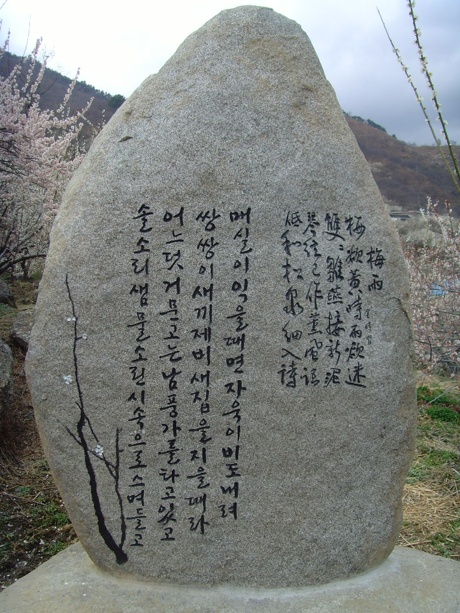 梅雨
梅欲黃時雨欲迷
雙雙雛燕接新泥
琴 已作薰風
低和松泉細入詩
매실이익을때면자욱이비도내려
쌍쌍이새끼제비새집을지을때라
어느덧거문고는남풍가를타고있고
솔소리샘물소린시속으로스며들고